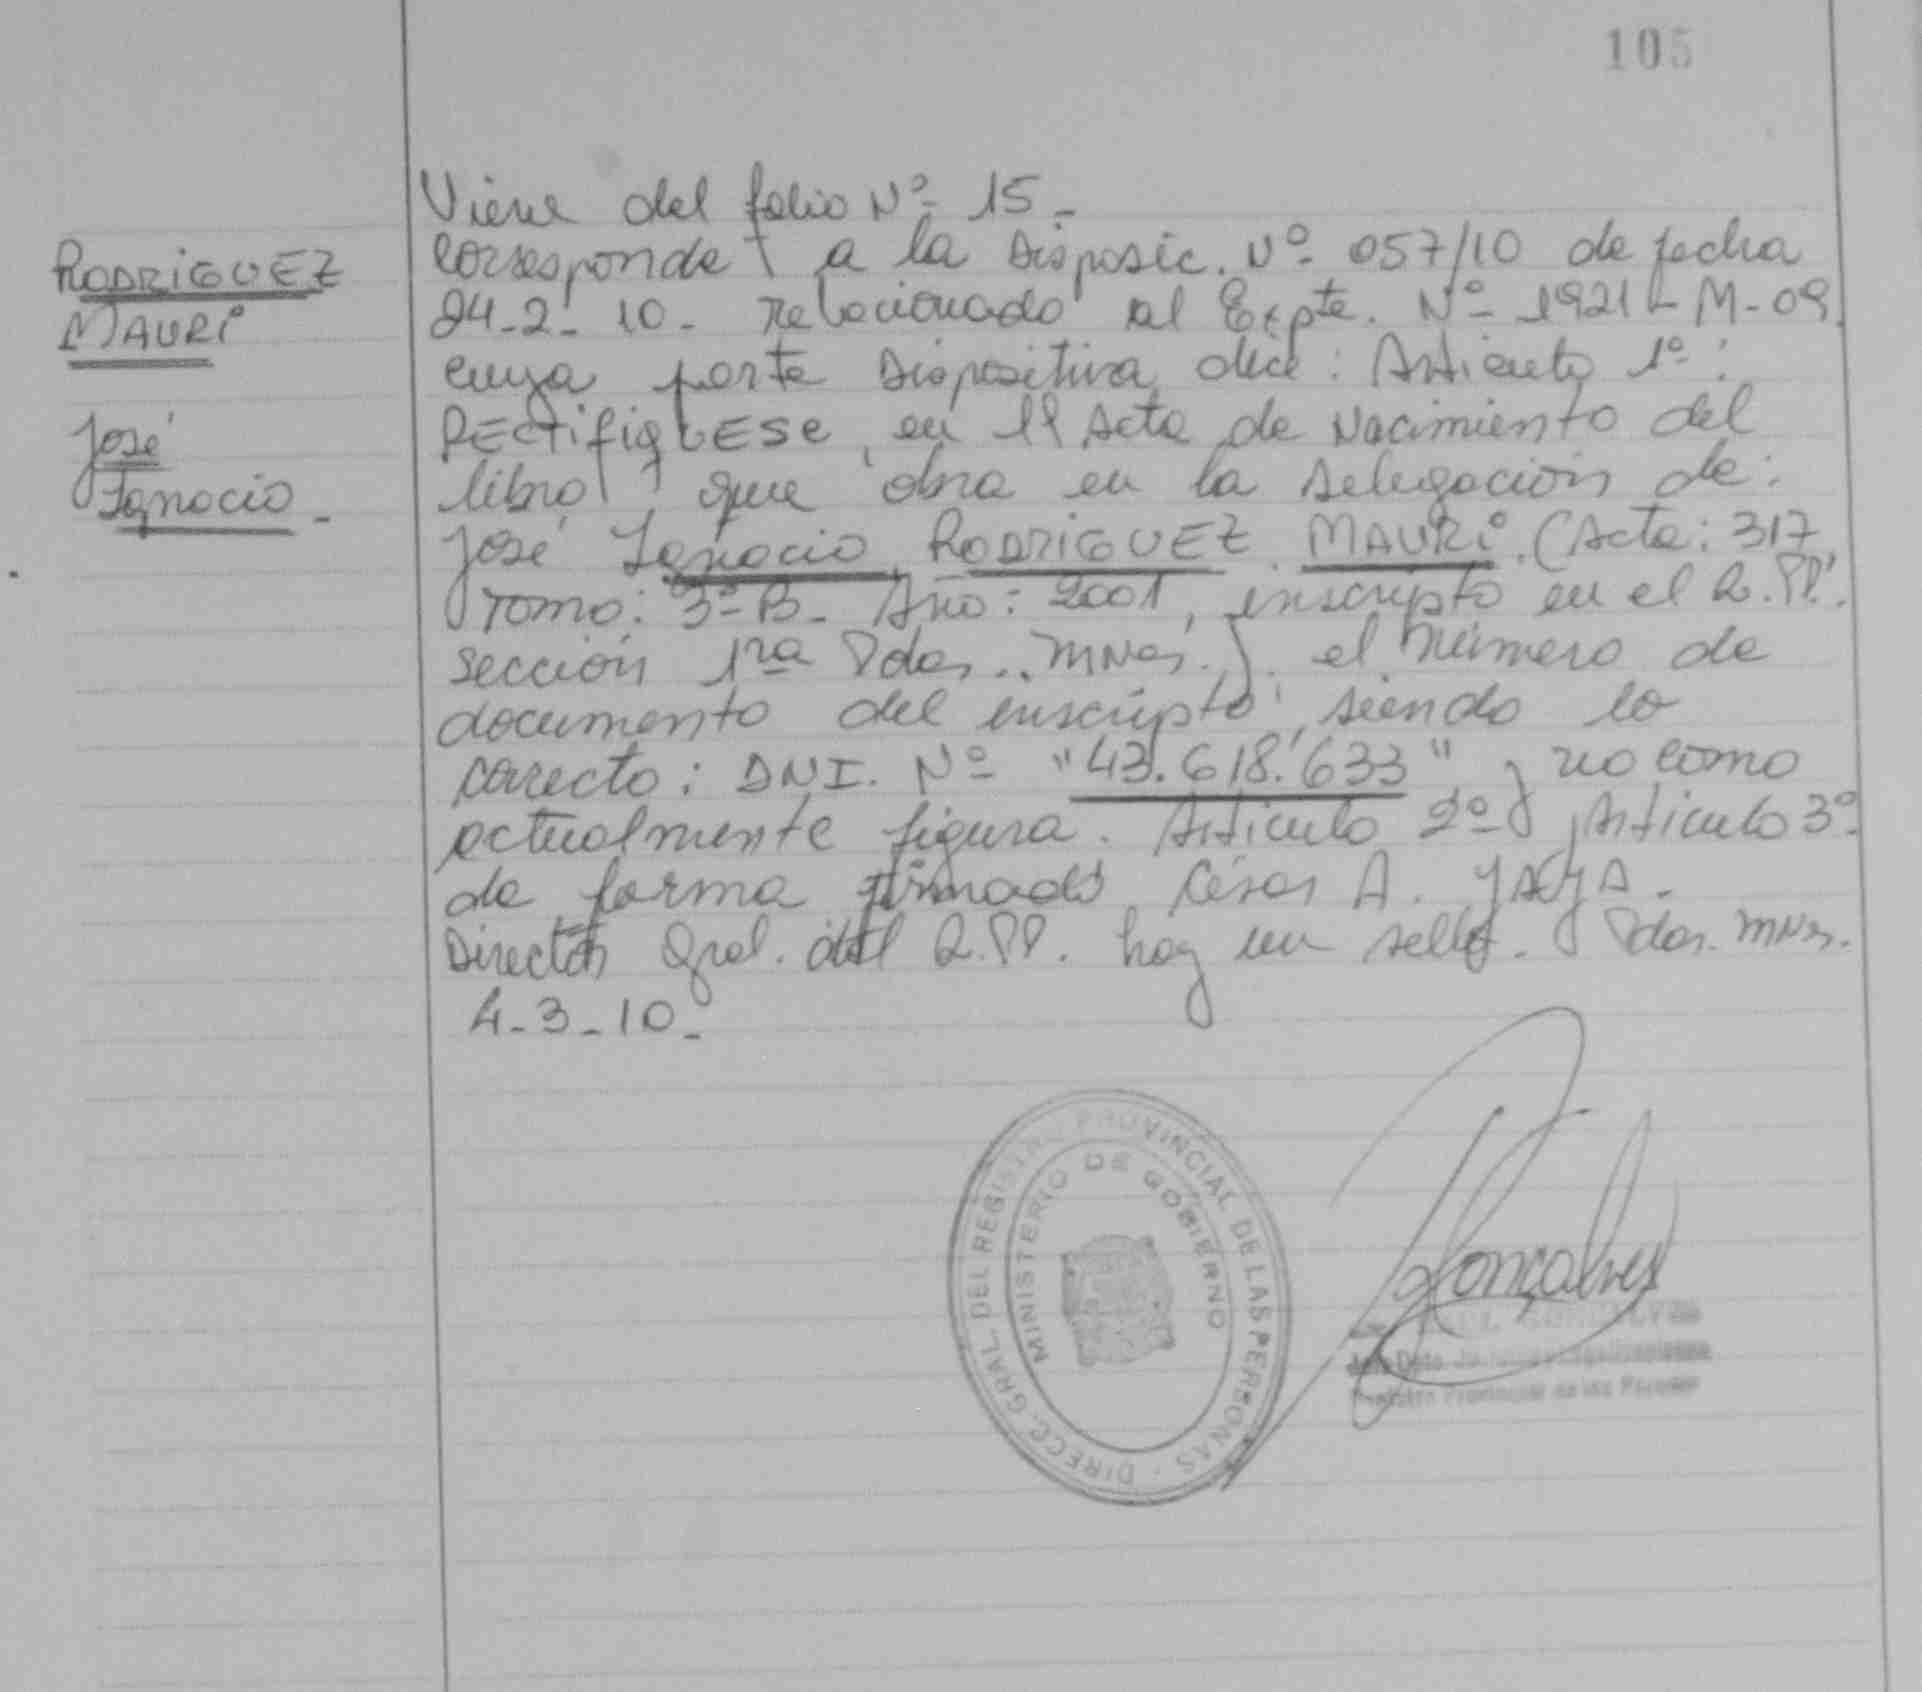 105
Viene del folio Nº 15_
RODRIGUEZ
MAURI
José
Ignacio_
Corresponde a la Disposic. Nº 057/10 de fecha
24-2-10- Relacionado al Expte. Nº 1921-M-09
cuya parte Dispositiva dice: Articulo 1º:
RECTifiqUESE, en el Acta de Nacimiento del
libro que obra en la Delegación de:
José Ignacio RODRIGUEZ MAURI. (Acta: 317
Tomo: 3º-B- Año: 2001, inscripto en el R.PP.
sección 1ra Pdas.. MNes.) el número de
documento del inscripto, siendo lo
correcto: DNI. Nº "43.618.633" y no como
actualmente figura. Articulo 2º y Articulo 3º
de forma firmado César A. YAYA.
Director Gral. del R.PP. hay un sello. Pdas. MNes.
4-3-10_
DIRECC. GRAL. DEL REGISTRO PROVINCIAL DE LAS PERSONAS
MINISTERIO DE GOBIERNO
Gonçalves
Registro Provincial de las Personas